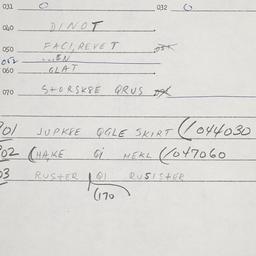 031 0 032 0
040 DINOT
050 FACI, REVET
052 ...EN
060 GLAT
070 STORSKRE QRUS
01 JUPKRE QGLE SKIRT (/044030
02 (HAKE QI NEKL (/047060
03 RUSTER QI RUSISTER
(170